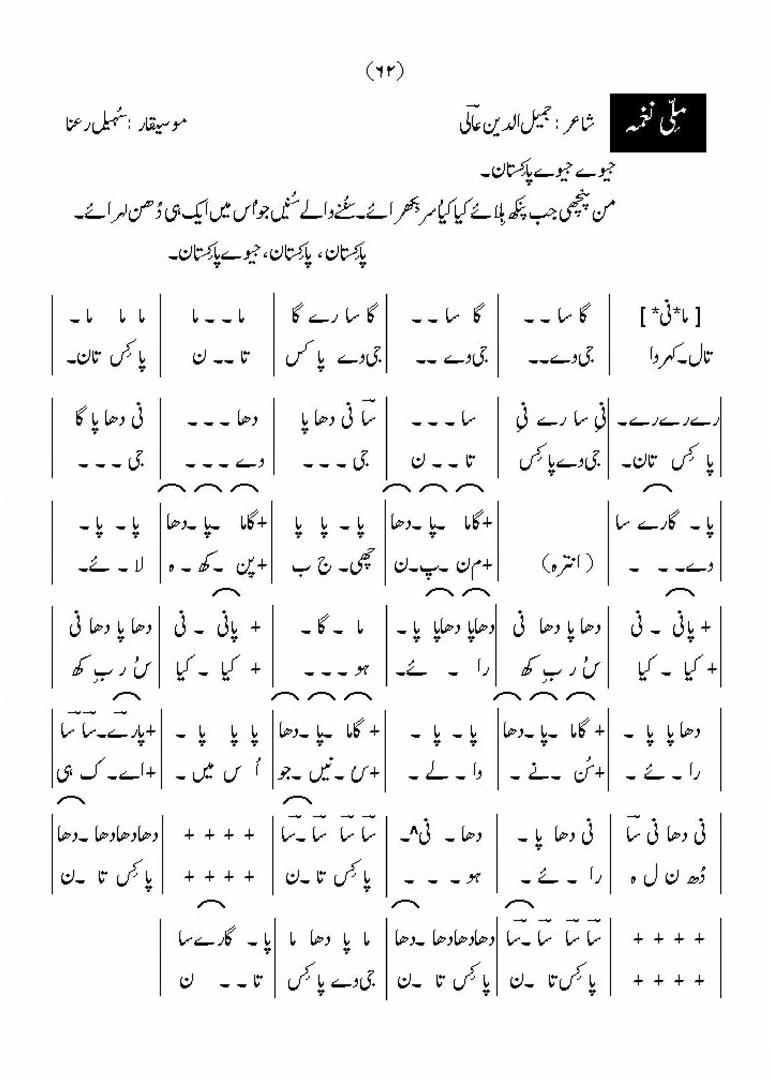 (۶۲)
ملّی نغمہ شاعر: جمیل الدین عالی موسیقار: سُہیل رعنا
جیوے جیوے پاکستان۔
من پنچھی جب پنکھ ہِلائے کیا کیا سر بکھرائے۔ سُننے والے سُنیں جو اُس میں ایک ہی دُھن لہرائے۔
پاکستان، پاکستان، جیوے پاکستان۔
[ ما* نی* ] | گا سا ۔ ۔ | گا سا ۔ ۔ | گا سا رے گا | ما ۔ ۔ ما | ما ما ما ۔ |
تال۔کہروا | جی وے ۔ ۔ | جی وے ۔ ۔ | جی وے پا کس | تا ۔ ۔ ن | پا کِس تان۔ |
رے رے رے۔ | نیِ سا رے نیِ | سا ۔ ۔ ۔ | سا نی دھا پا | دھا ۔ ۔ ۔ | نی دھا پا گا |
پا کِس تان۔ | جی وے پا کِس | تا ۔ ۔ ن | جی ۔ ۔ ۔ | وے ۔ ۔ ۔ | جی ۔ ۔ ۔ |
پا ۔ گارے سا | | +گاما ۔پا ۔دھا | پا ۔ پا پا | +گاما ۔پا ۔دھا | پا ۔ پا ۔ |
وے ۔ ۔ ۔ | (انترہ) | +م ن ۔پ ۔ن | چھی۔ ج ب | +پن ۔کھ ۔ہ | لا ۔ ئے ۔ |
+ پانی ۔ نی | دھا پا دھا نی | دھاپا دھاپا پا ۔ | ما ۔ گا ۔ | + پانی ۔ نی | دھا پا دھا نی |
+ کیا ۔ کیا | سُ ر بِ کھ | را ۔ ئے ۔ | ہو ۔ ۔ ۔ | + کیا ۔ کیا | سُ ر بِ کھ |
دھا پا پا ۔ | + گاما ۔پا ۔دھا | پا ۔ پا ۔ | + گاما ۔پا ۔دھا | پا پا پا ۔ | +پارے ۔سا سا |
را ۔ ئے ۔ | +سُن ۔ نے ۔ | وا ۔ لے ۔ | +سُ ۔نیں ۔جو | اُ س میں ۔ | +اے ۔ ک ہی |
نی دھا نی سا | نی دھا پا ۔ | دھا ۔ نی^۔ | سا سا سا ۔سا | + + + + | دھادھادھا ۔دھا |
دُھ ن ل ہ | را ۔ ئے ۔ | ہو ۔ ۔ ۔ | پا کِس تا ۔ن | + + + + | پا کِس تا ۔ن |
+ + + + | سا سا سا ۔سا | دھادھادھا ۔دھا | ما پا دھا ما | پا ۔ گارے سا |
+ + + + | پا کِس تا ۔ن | پا کِس تا ۔ن | جی وے پا کِس | تا ۔ ۔ ن |